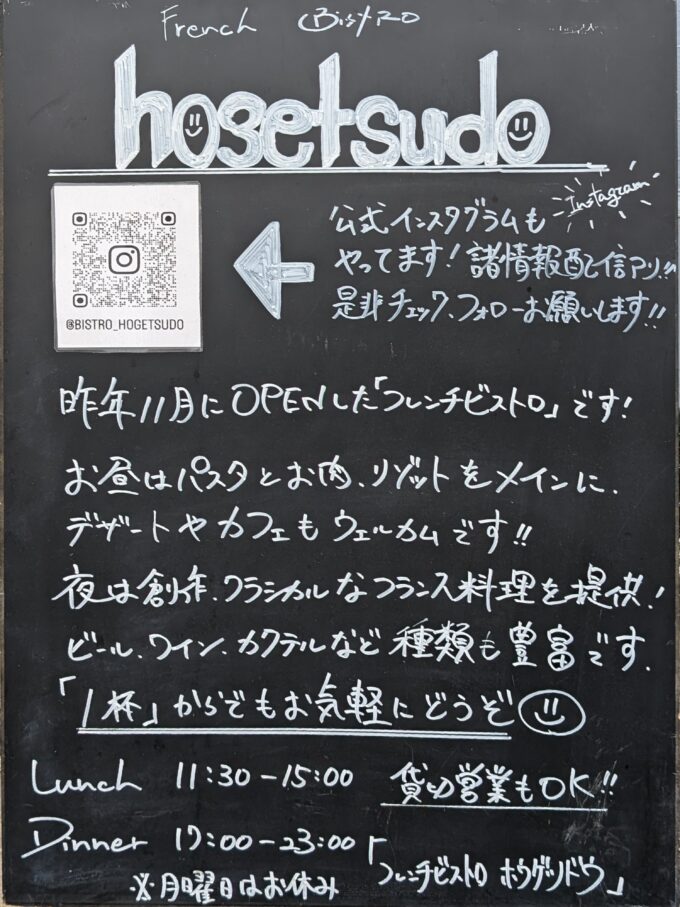 French Bistro
hogetsudo
Instagram
@BISTRO_HOGETSUDO
公式インスタグラムも
やってます！諸情報配信アリ!!
是非チェック、フォローお願いします!!
昨年11月にOPENした「フレンチビストロ」です！
お昼はパスタとお肉、リゾットをメインに、
デザートやカフェもウェルカムです!!
夜は創作、クラシカルなフランス料理を提供！
ビール、ワイン、カクテルなど種類も豊富です。
「1杯」からでもお気軽にどうぞ
Lunch 11:30-15:00 貸切営業もOK!!
Dinner 17:00-23:00
※月曜日はお休み 「フレンチビストロ ホウゲツドウ」